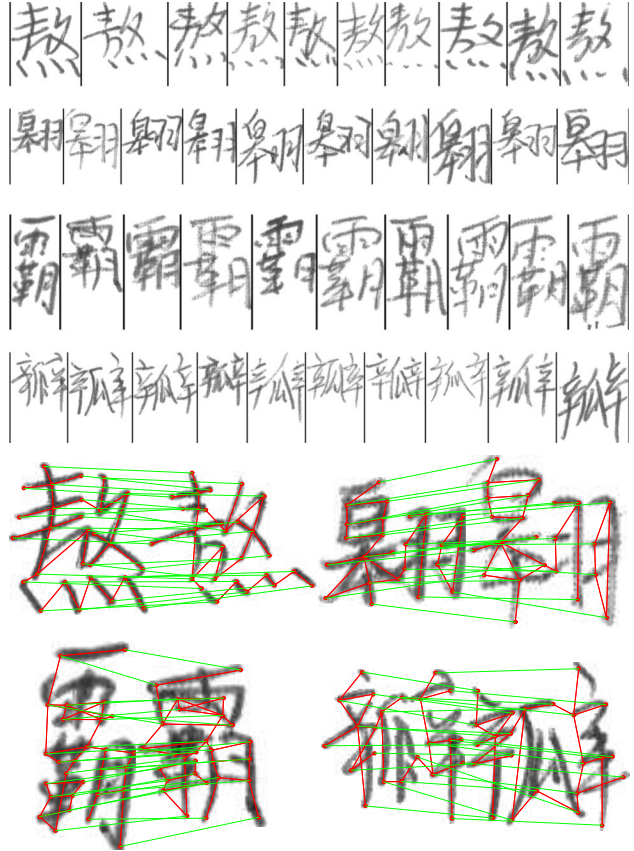 熬 熬 熬 熬 熬 熬 熬 熬 熬 熬
翱 翱 翱 翱 翱 翱 翱 翱 翱 翱
霸 霸 霸 霸 霸 霸 霸 霸 霸 霸
瓣 瓣 瓣 瓣 瓣 瓣 瓣 瓣 瓣 瓣
熬 熬 翱 翱
霸 霸 瓣 瓣